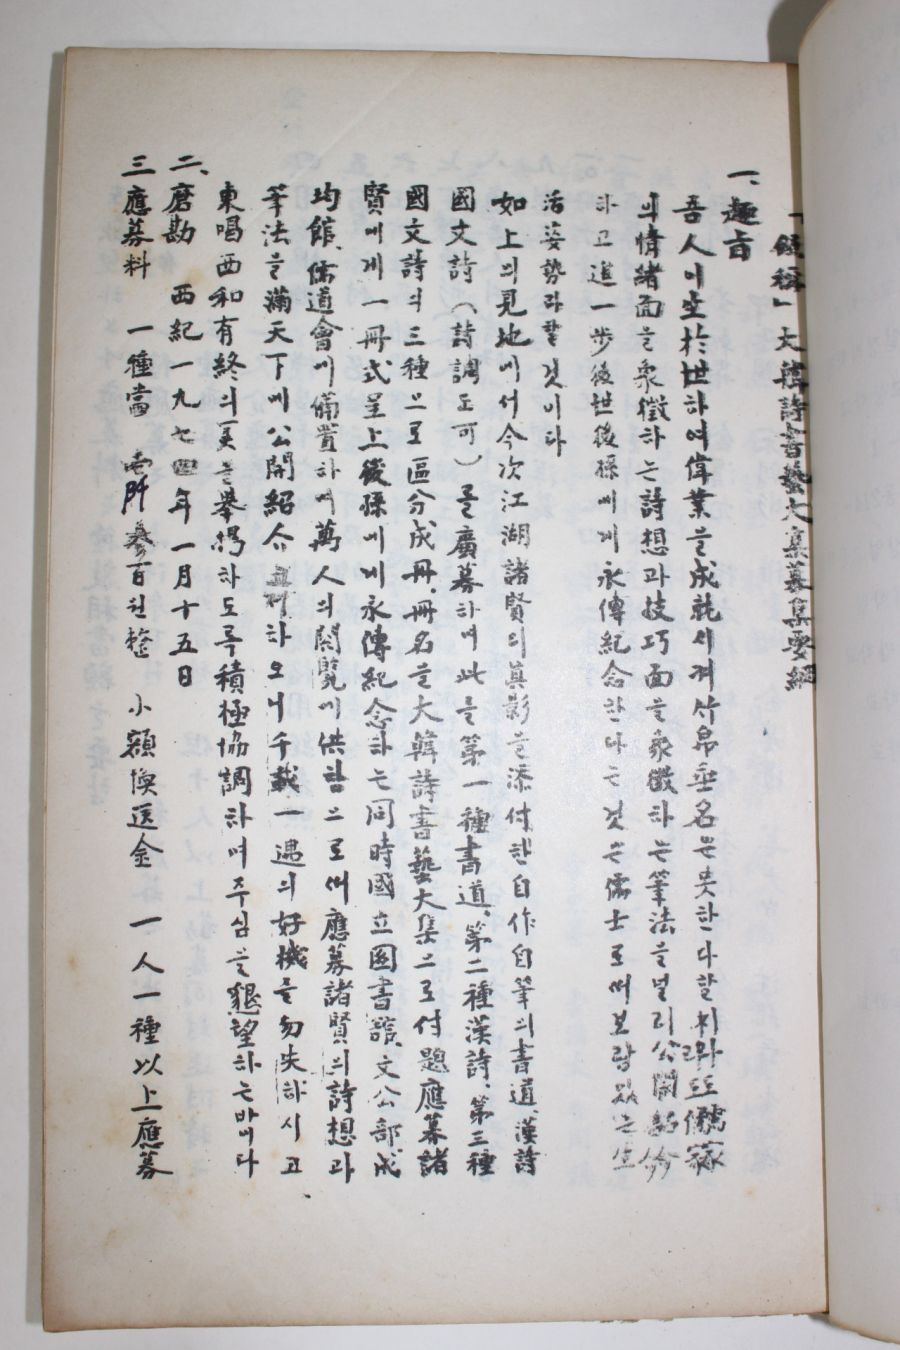 「假稱」大韓詩書藝大集募集要綱
一、趣旨
吾人이生於世하여偉業을成就시켜竹帛垂名은못한다할지라도儒家
의情緖面을象徵하는詩想과技巧面을象徵하는筆法을널리公開紹介
하고進一步後世後孫에게永傳紀念한다는것은儒士로써보람있는生
活姿勢라할것이다
如上의見地에서今次江湖諸賢의眞影을添付한自作自筆의書道、漢詩
國文詩(詩調도可)를廣募하여此를第一種書道、第二種漢詩、第三種
國文詩의三種으로區分成冊、冊名을大韓詩書藝大集으로付題應募諸
賢에게一冊式呈上後孫에게永傳紀念하는同時國立図書舘、文公部成
均館、儒道會에備置하여萬人의閱覽에供함으로써應募諸賢의詩想과
筆法을滿天下에公開紹介 하오니千載一遇의好機를勿失하시고
東唱西和有終의美를擧揚하도록積極協調하여주심을懇望하는바이다
二、磨勘 西紀一九七四年一月十五日
三 應募料 一種當 壹阡參百원整 小額換送金 一人一種以上應募